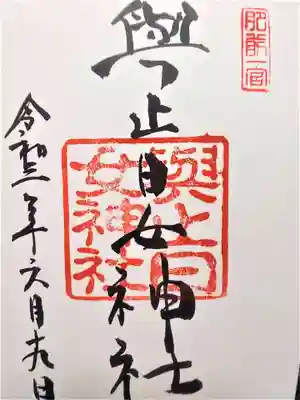 肥前一宮
與止日女神社
與止日
女神社
令和三年六月十九日